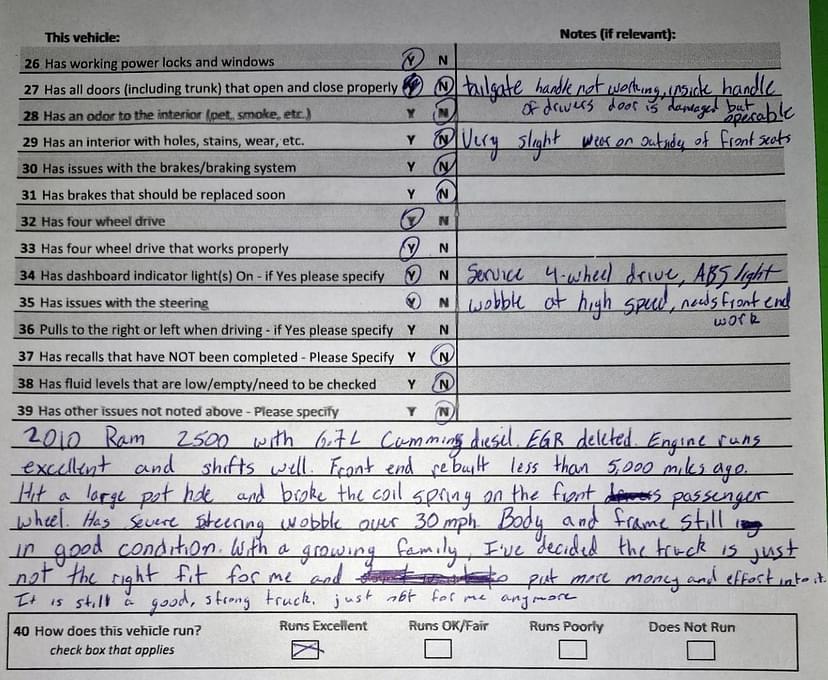 This vehicle: Notes (if relevant):
26 Has working power locks and windows Y N
27 Has all doors (including trunk) that open and close properly Y N tailgate handle not working, inside handle
of drivers door is damaged but
operable
28 Has an odor to the interior (pet, smoke, etc.) Y N
29 Has an interior with holes, stains, wear, etc. Y N Very slight wear on outsides of front seats
30 Has issues with the brakes/braking system Y N
31 Has brakes that should be replaced soon Y N
32 Has four wheel drive Y N
33 Has four wheel drive that works properly Y N
34 Has dashboard indicator light(s) On - if Yes please specify Y N Service 4-wheel drive, ABS light
35 Has issues with the steering Y N wobble at high speed, needs front end
work
36 Pulls to the right or left when driving - if Yes please specify Y N
37 Has recalls that have NOT been completed - Please Specify Y N
38 Has fluid levels that are low/empty/need to be checked Y N
39 Has other issues not noted above - Please specify Y N
2010 Ram 2500 with 6.7L Cummins diesel. EGR deleted. Engine runs
excellent and shifts well. Front end rebuilt less than 5,000 miles ago.
Hit a large pot hole and broke the coil spring on the front passenger
wheel. Has severe steering wobble over 30 mph. Body and frame still
in good condition. With a growing family, I've decided the truck is just
not the right fit for me and to put more money and effort into it.
It is still a good, strong truck, just not for me anymore
40 How does this vehicle run? Runs Excellent Runs OK/Fair Runs Poorly Does Not Run
check box that applies